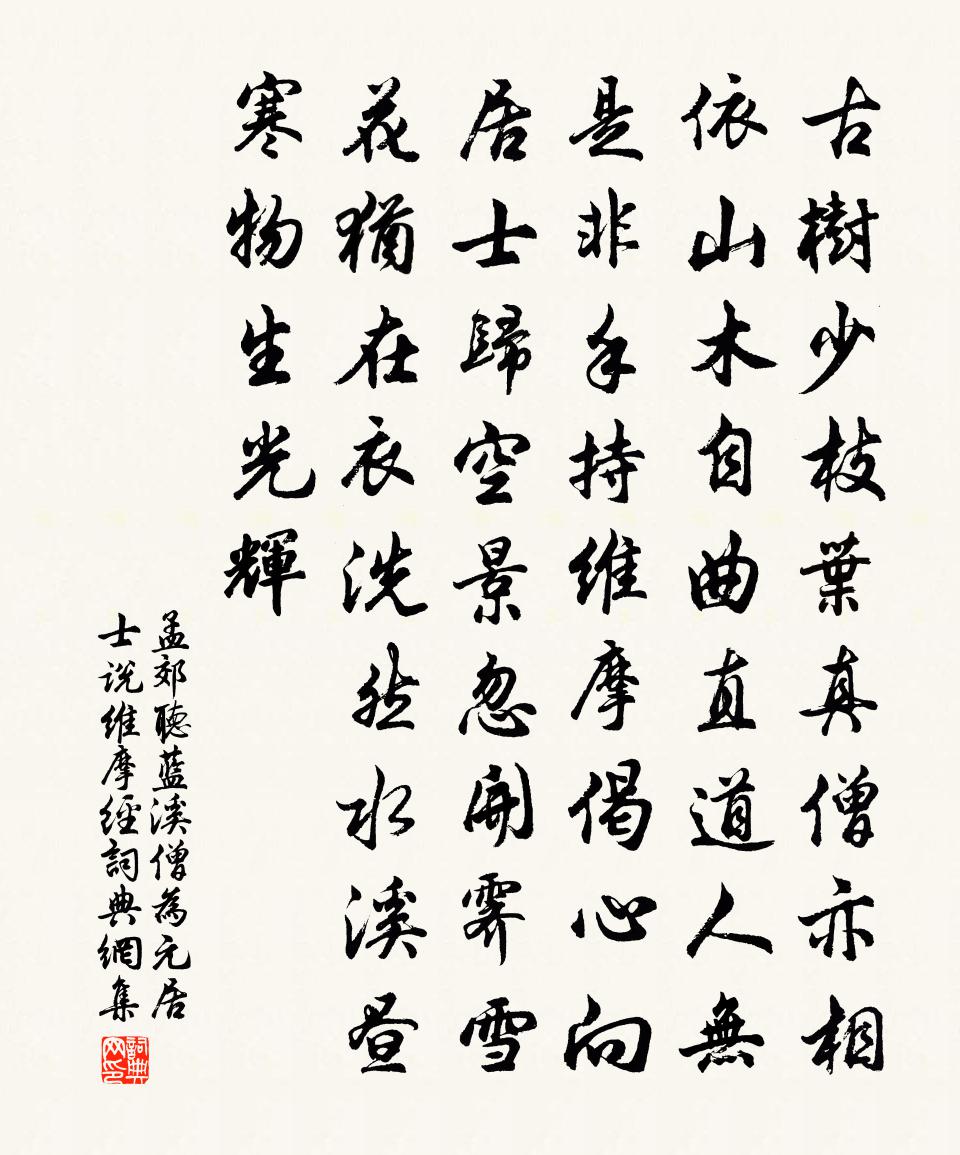 古樹少枝葉真僧亦相
依山木自曲直道人無
是非手持維摩偈心向
居士歸空景忽開霽雪
花猶在衣洗然水溪晝
寒物生光輝
孟郊聽藍溪僧為元居
士说維摩經詞典網集
詞典
网印